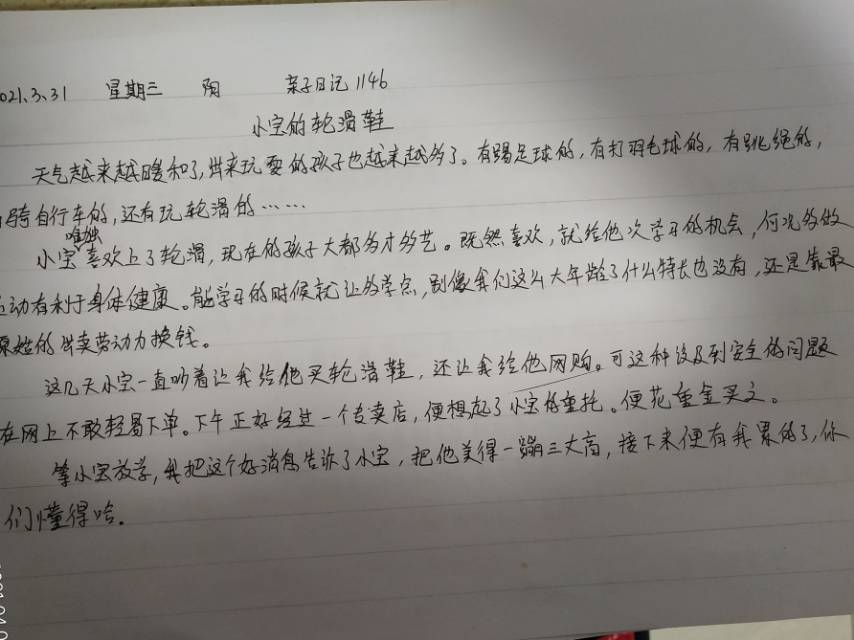 021.3.31 星期三 阴 亲子日记1146
小宝的轮滑鞋
天气越来越暖和了,出来玩耍的孩子也越来越多了。有踢足球的,有打羽毛球的,有跳绳的,
骑自行车的,还有玩轮滑的……
唯独
小宝喜欢上了轮滑,现在的孩子大都多才多艺。既然喜欢,就给他次学习的机会,何况多做
运动有利于身体健康。能学习的时候就让多学点,别像我们这么大年龄了什么特长也没有,还是靠最
原始的出卖劳动力换钱。
这几天小宝一直吵着让我给他买轮滑鞋,还让我给他网购。可这种涉及到安全的问题
在网上不敢轻易下单。下午正好经过一个专卖店,便想起了小宝的重托。便花重金买之。
等小宝放学,我把这个好消息告诉了小宝,把他美得一蹦三大高,接下来便有我累的了,你
们懂得哈。